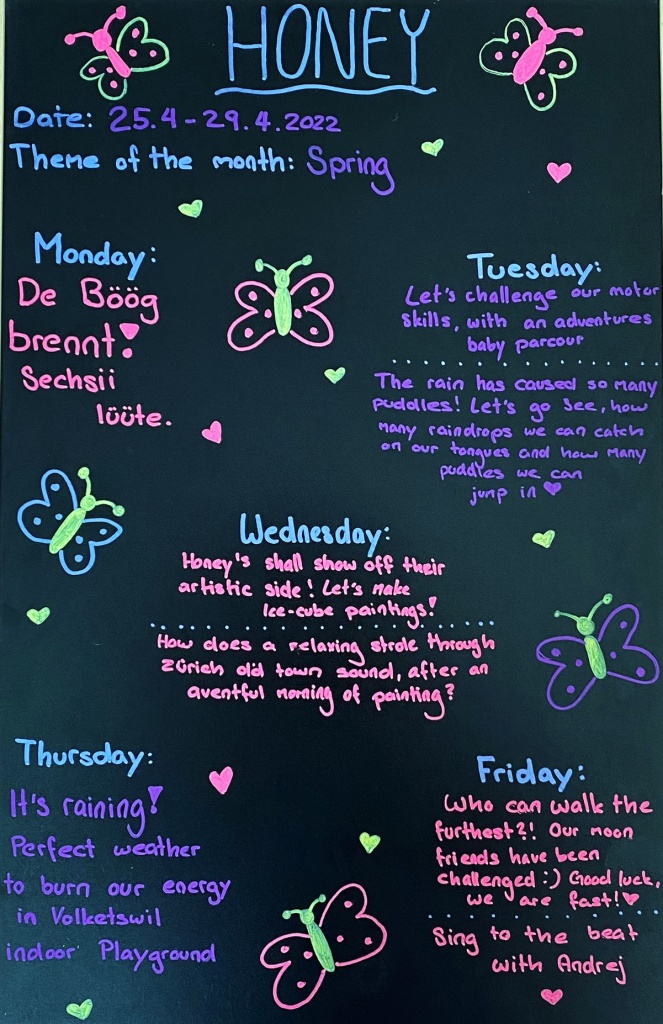 HONEY
Date: 25.4-29.4.2022
Theme of the month: Spring
Monday:
De Böög
brennt!
Sechsii
lüüte.
Tuesday:
Let's challenge our motor
skills, with an adventures
baby parcour
The rain has caused so many
puddles! Let's go see, how
many raindrops we can catch
on our tongues and how many
puddles we can
jump in
Wednesday:
Honey's shall show off their
artistic side! Let's make
Ice-cube paintings!
How does a relaxing strole through
Zürich old town sound, after an
aventful morning of painting?
Thursday:
It's raining!
Perfect weather
to burn our energy
in Volketswil
indoor Playground
Friday:
Who can walk the
furthest?! Our moon
friends have been
challenged :) Good luck,
we are fast!
Sing to the beat
with Andrej